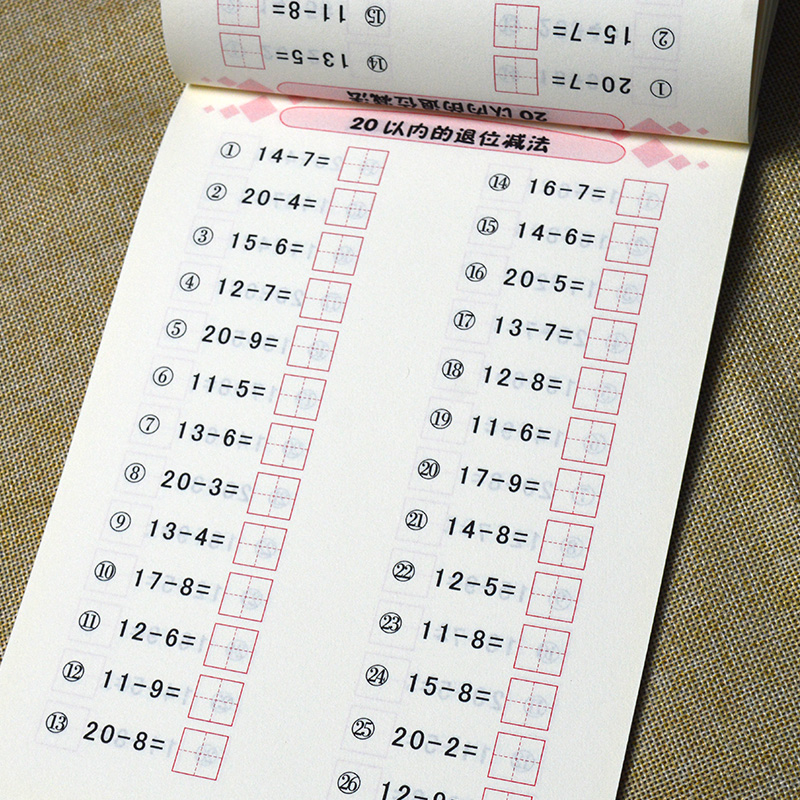 ⑮ 11-8=
② 15-7=
⑭ 13-5=
① 20-7=
20以内的退位减法
20以内的退位减法
① 14-7=
② 20-4=
③ 15-6=
④ 12-7=
⑤ 20-9=
⑥ 11-5=
⑦ 13-6=
⑧ 20-3=
⑨ 13-4=
⑩ 17-8=
⑪ 12-6=
⑫ 11-9=
⑬ 20-8=
⑭ 16-7=
⑮ 14-6=
⑯ 20-5=
⑰ 13-7=
⑱ 12-8=
⑲ 11-6=
⑳ 17-9=
㉑ 14-8=
㉒ 12-5=
㉓ 11-8=
㉔ 15-8=
㉕ 20-2=
㉖